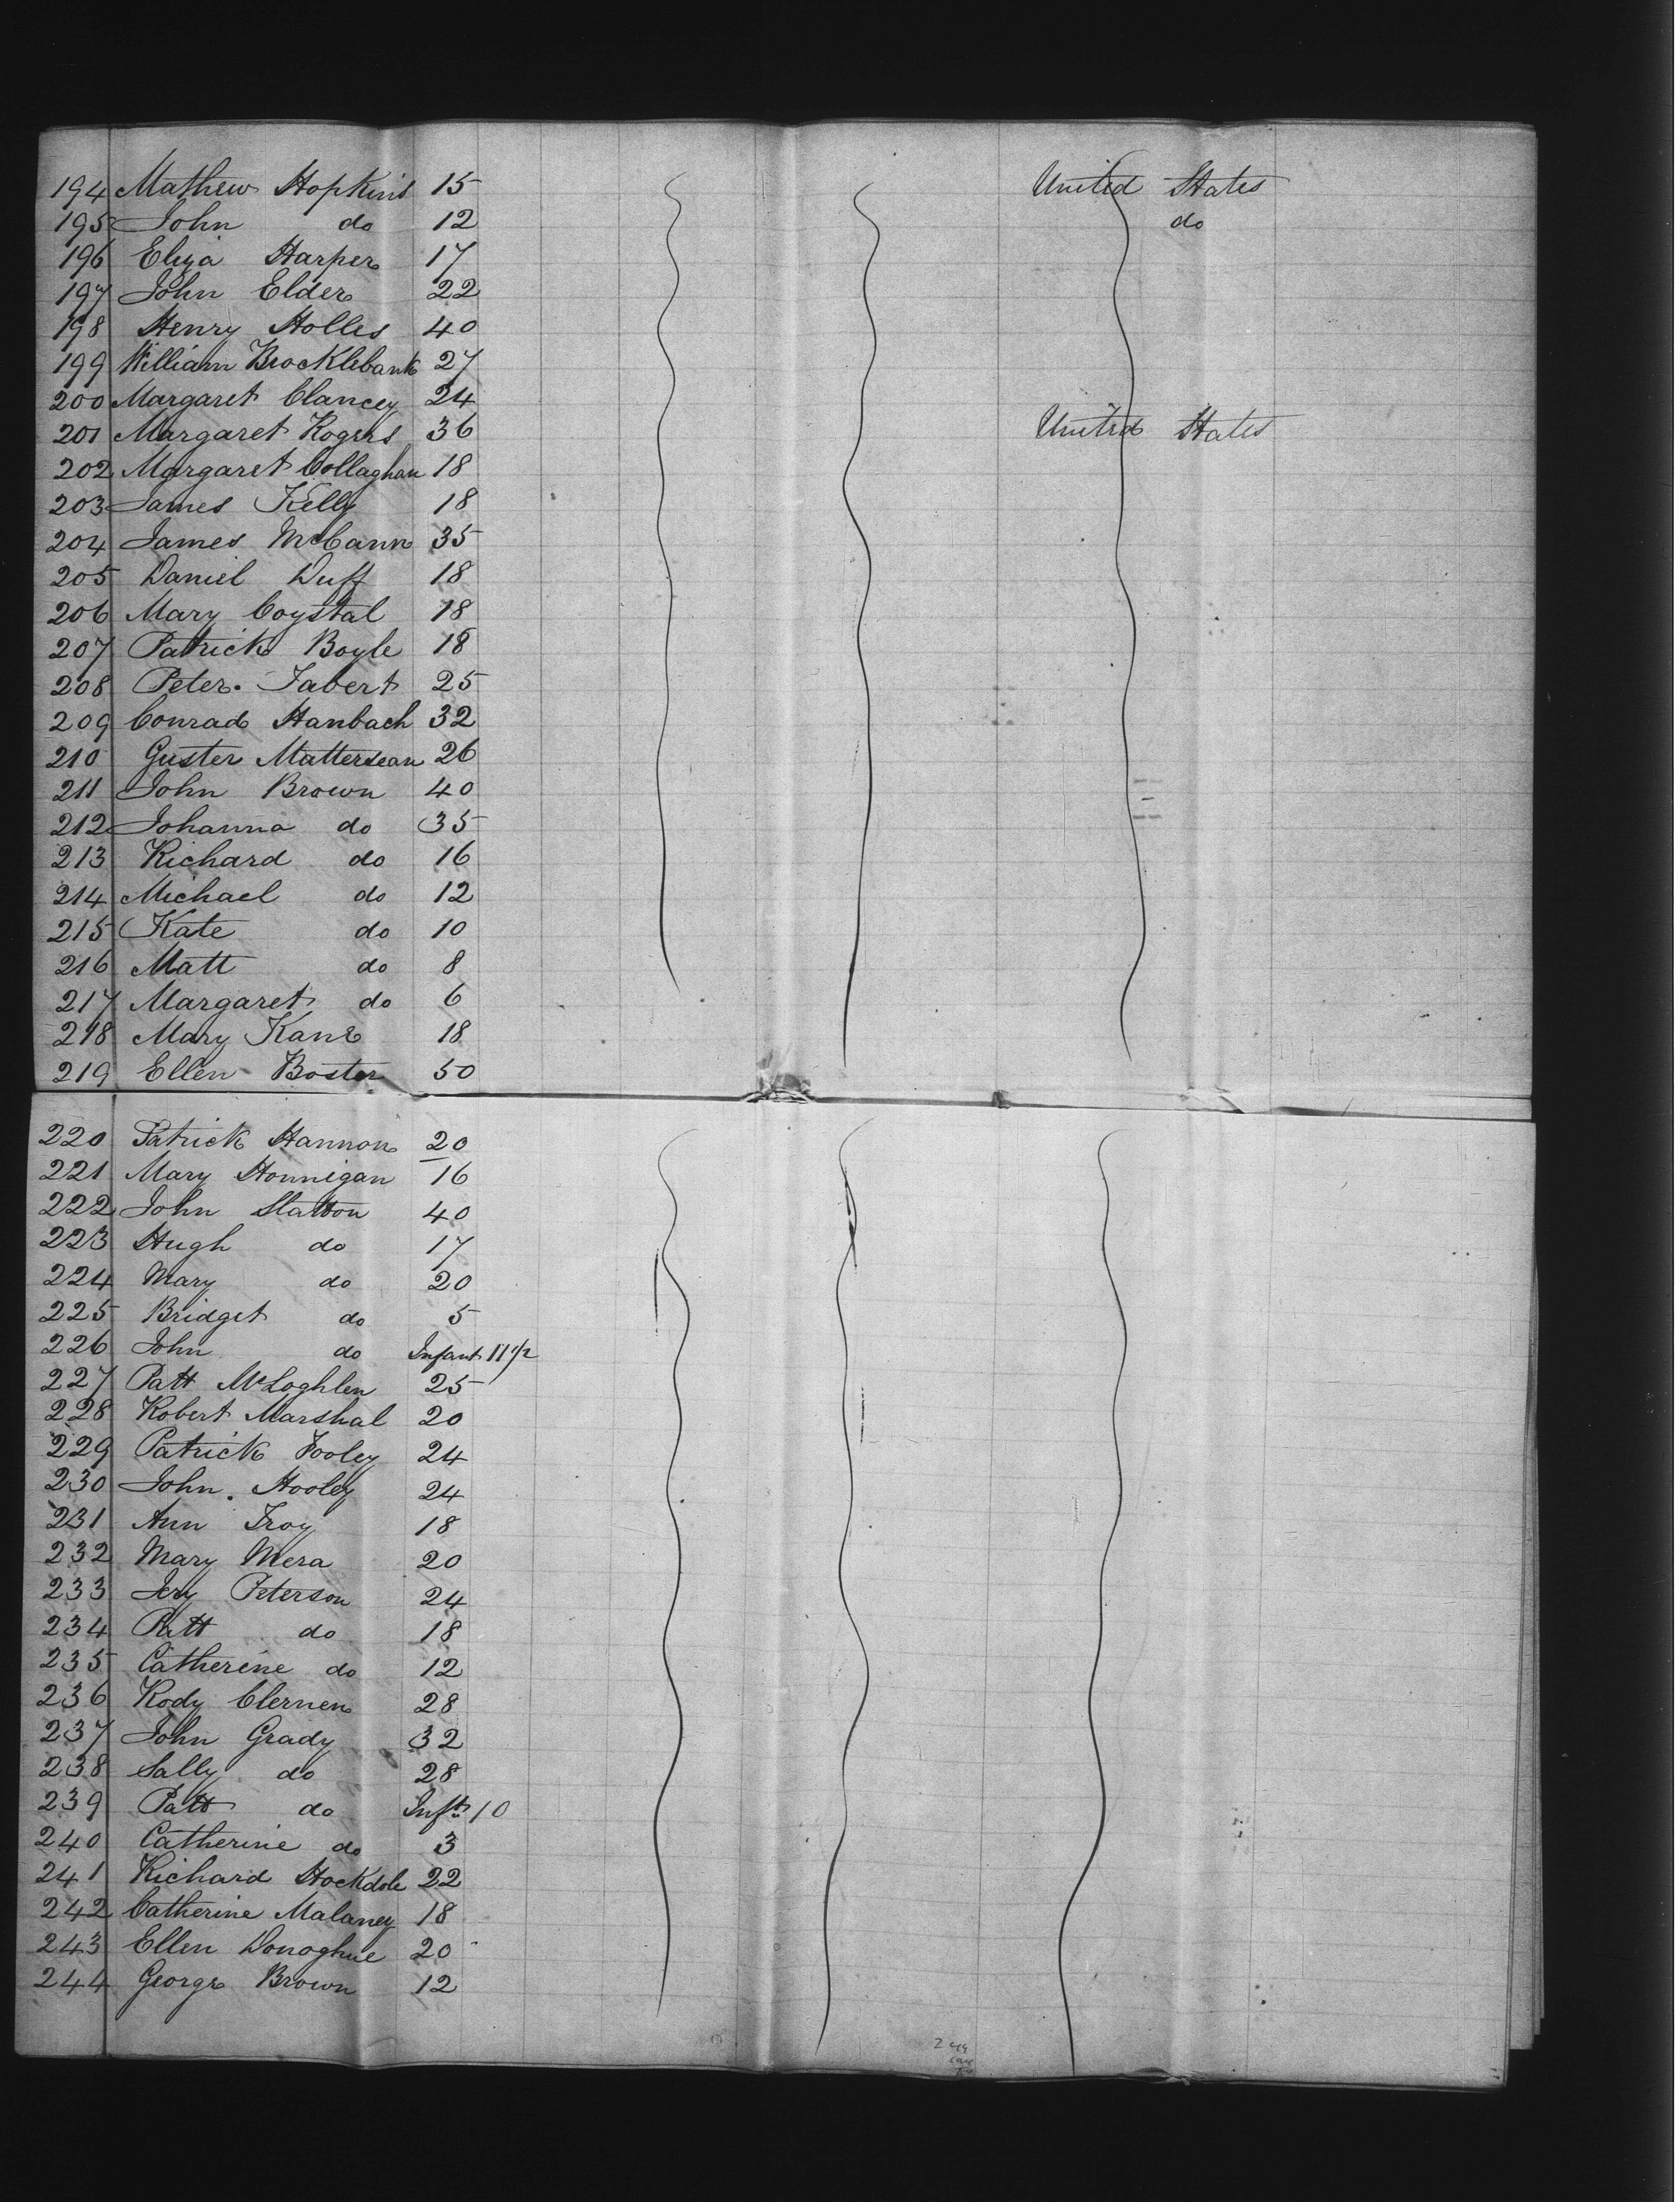 194 Mathew Hopkins 15 United States
195 John do 12 do
196 Eliza Harper 17
197 John Elder 22
198 Henry Holles 40
199 William Brocklebank 27
200 Margaret Clancey 24
201 Margaret Rogers 36 United States
202 Margaret Collaghan 18
203 James Kelly 18
204 James McCann 35
205 Daniel Duff 18
206 Mary Coystal 18
207 Patrick Boyle 18
208 Peter Tabert 25
209 Conrad Hanbach 32
210 Guster Mattersean 26
211 John Brown 40
212 Johanna do 35
213 Richard do 16
214 Michael do 12
215 Kate do 10
216 Matt do 8
217 Margaret do 6
218 Mary Kane 18
219 Ellen Boster 50
220 Patrick Hannon 20
221 Mary Honnigan 16
222 John Slatton 40
223 Hugh do 17
224 Mary do 20
225 Bridget do 5
226 John do Infant 11 1/2
227 Patt McLoghlen 25
228 Robert Marshal 20
229 Patrick Fooley 24
230 John. Hooley 24
231 Ann Troy 18
232 Mary Mera 20
233 Jery Peterson 24
234 Patt do 18
235 Catherine do 12
236 Rody Clernen 28
237 John Grady 32
238 Sally do 28
239 Patt do Inft 10
240 Catherine do 3
241 Richard Stockdole 22
242 Catherine Malaney 18
243 Ellen Donoghue 20
244 George Brown 12